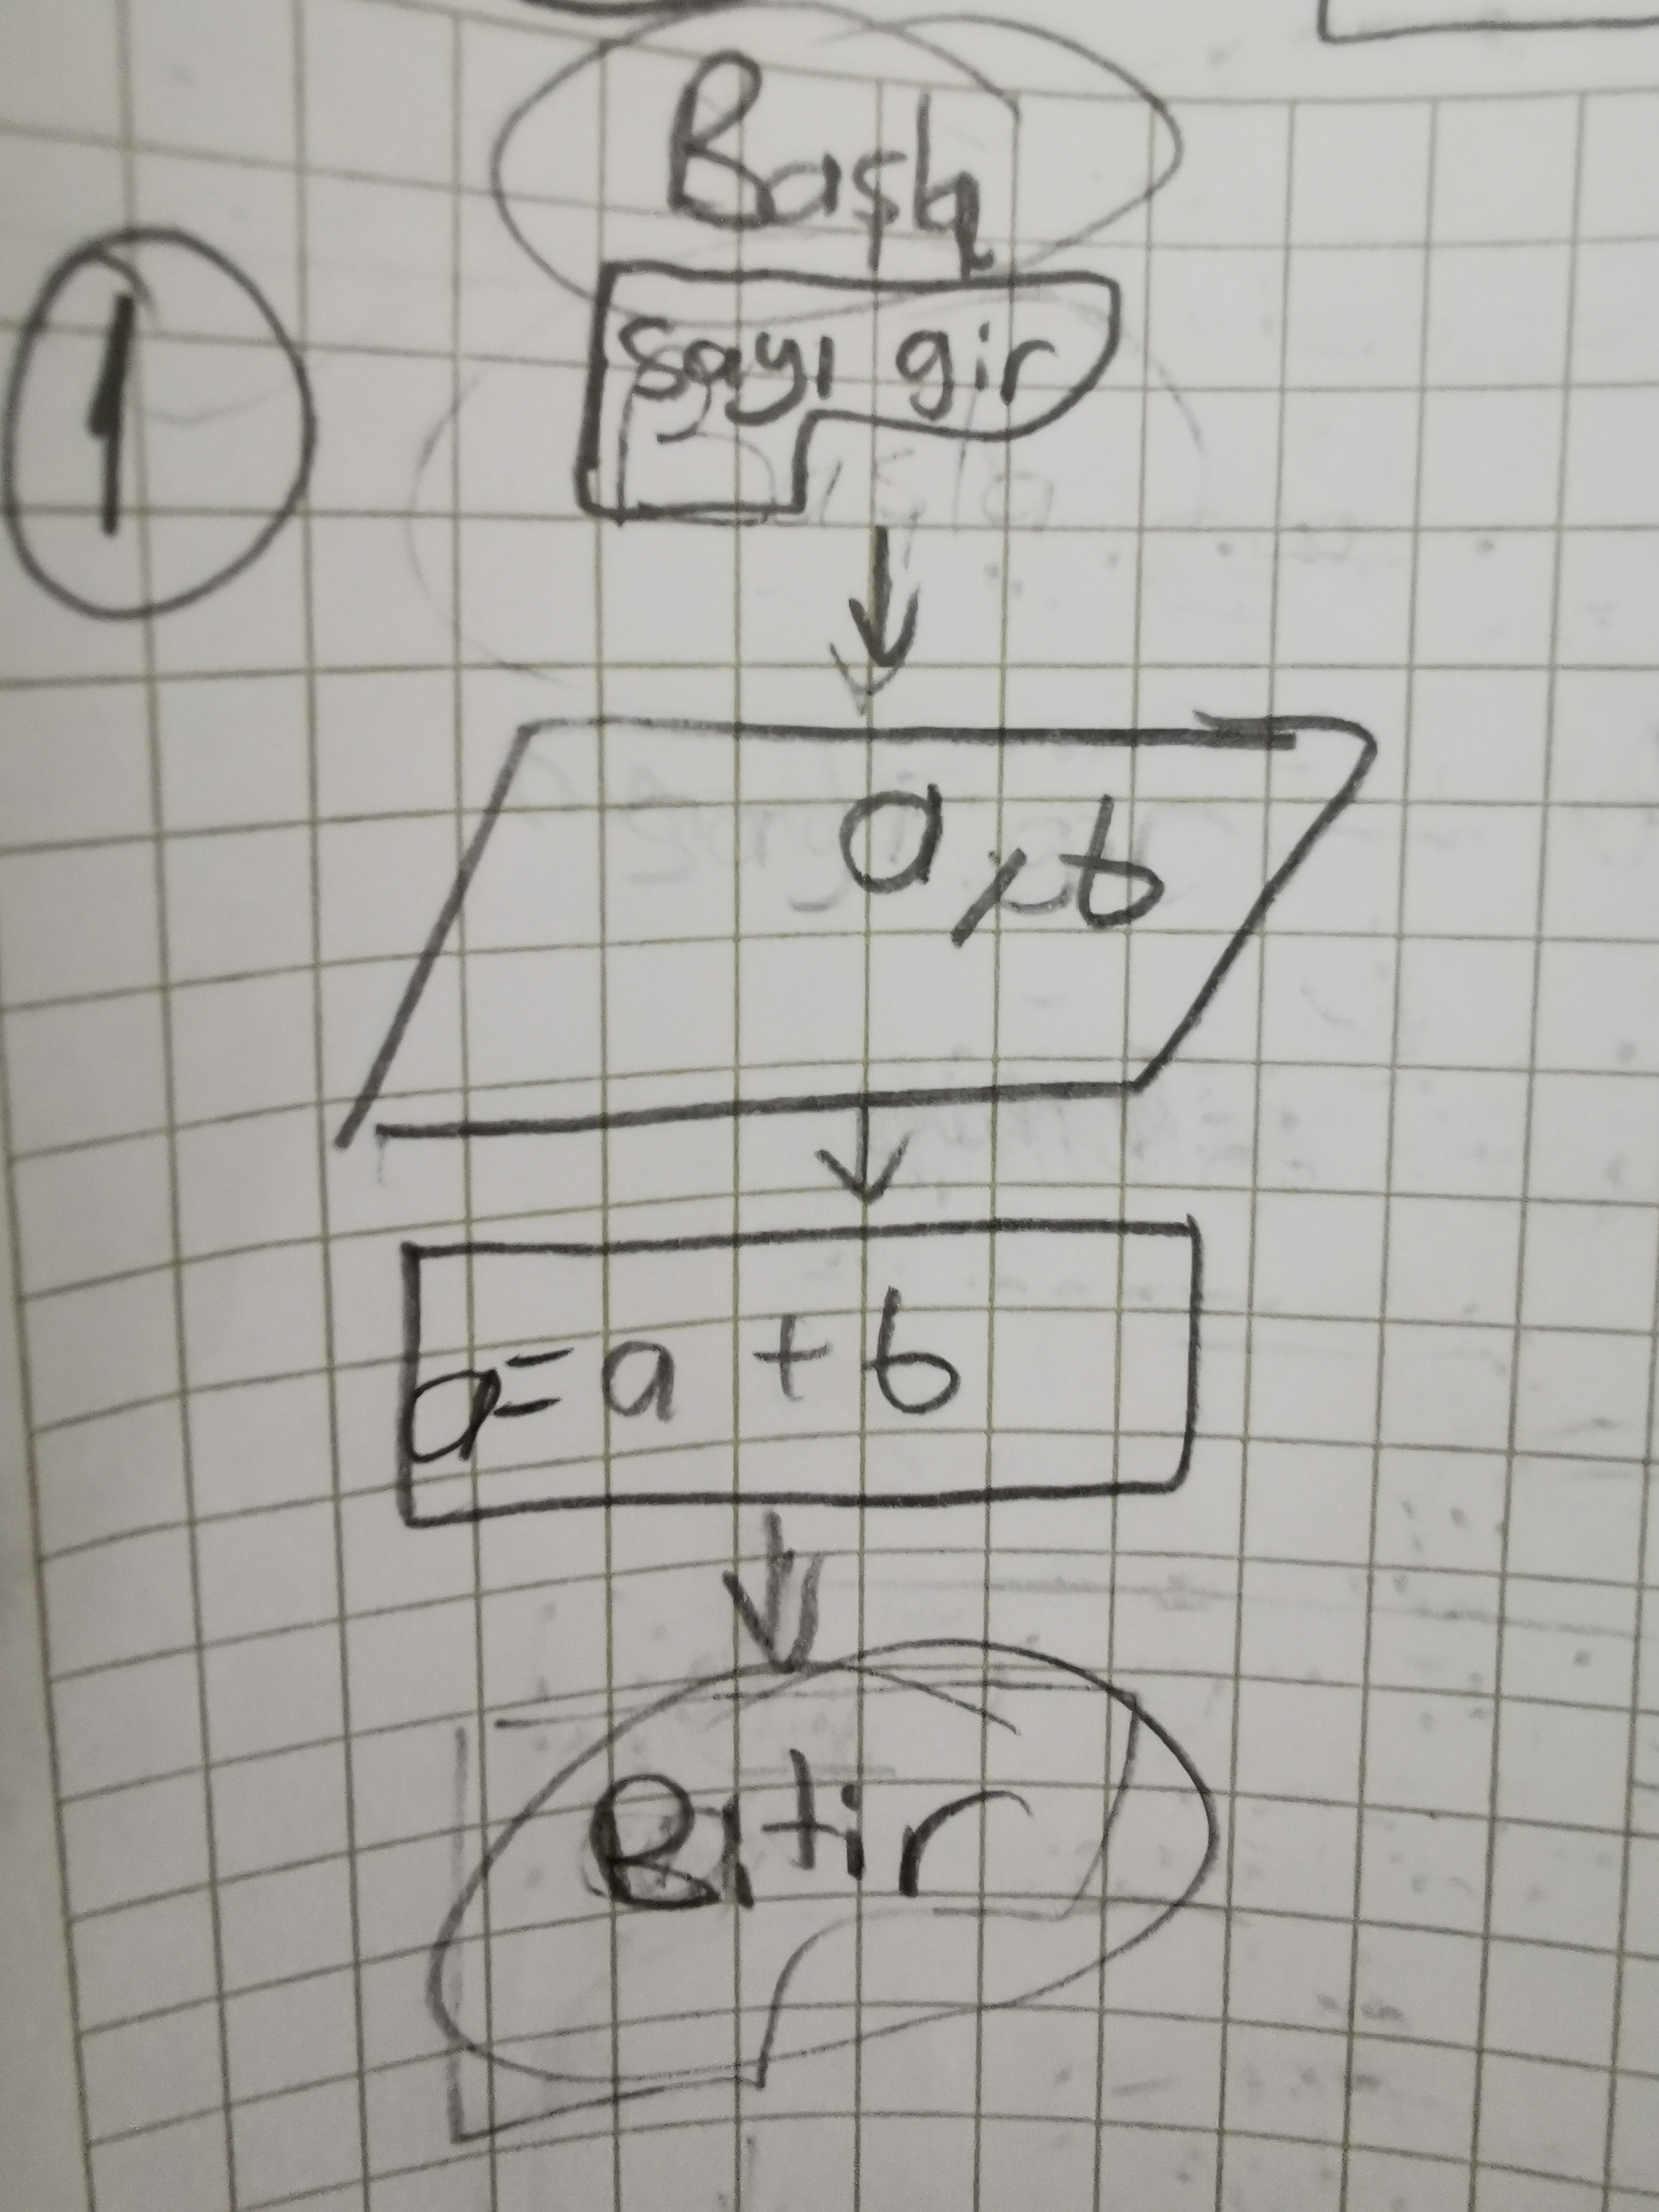 Başla
1
Sayı gir
a, b
a = a + b
Bitir